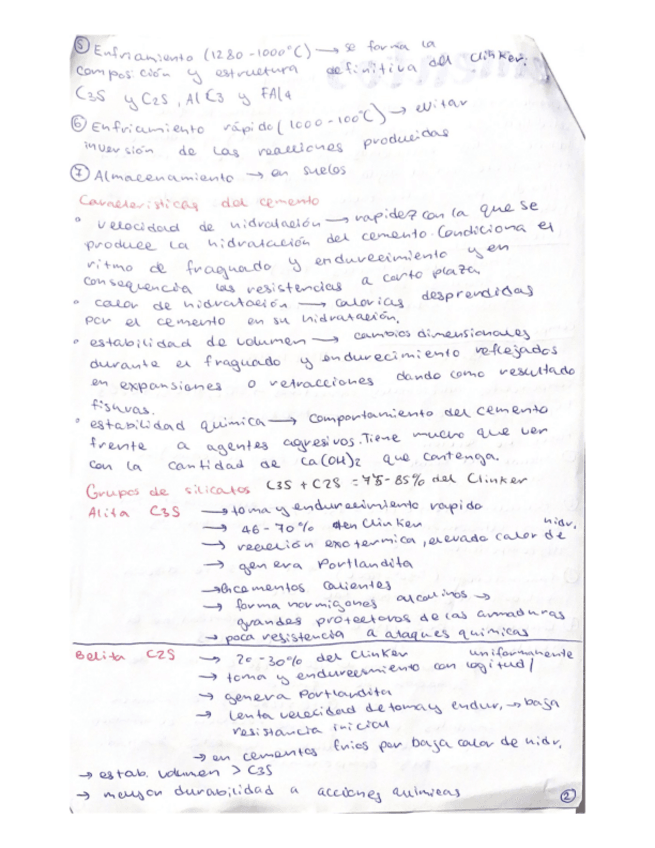 ⑤ Enfriamiento (1280-1000°C) → se forma la
composición y estructura definitiva del Clinker:
C3S y C2S, AlC3 y FAl4
⑥ Enfriamiento rápido (1000-100°C) → evitar
inversión de las reacciones producidas
⑦ Almacenamiento → en suelos
Características del cemento
° velocidad de hidratación → rapidez con la que se
produce la hidratación del cemento. Condiciona el
ritmo de fraguado y endurecimiento y en
consecuencia las resistencias a corto plazo,
° calor de hidratación → calorías desprendidas
por el cemento en su hidratación,
° estabilidad de volumen → cambios dimensionales
durante el fraguado y endurecimiento reflejados
en expansiones o retracciones dando como resultado
fisuras.
° estabilidad química → comportamiento del cemento
frente a agentes agresivos. Tiene mucho que ver
con la cantidad de Ca(OH)2 que contenga.
Grupos de silicatos C3S + C2S = 75-85% del Clinker
Alita C3S → toma y endurecimiento rapido
→ 46-70% den Clinker
→ reacción exotermica, elevado calor de hidr.
→ genera Portlandita
→ cementos calientes
→ forma hormigones alcalinos →
grandes protectores de las armaduras
→ poca resistencia a ataques químicos
Belita C2S → 20-30% del Clinker
→ toma y endurecimiento con logitud/ uniformanente
→ genera Portlandita
→ lenta velocidad de toma y endur, → baja
resistancia inicial
→ en cementos frios por baja calor de hidr,
→ estab. volumen > C3S
→ menson durabilidad a acciones químicas
②